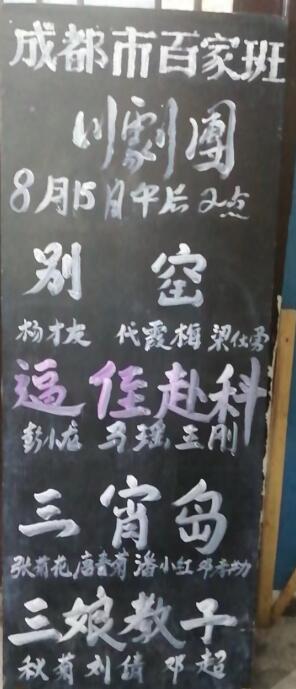 成都市百家班
川劇團
8月15日午后2点
别窑
杨才友 代霞梅 梁仕勇
逼侄赴科
彭小龙 马瑶 王刚
三宵岛
张菊花 唐春菊 潘小红
三娘教子
秋菊 刘倩 邓超